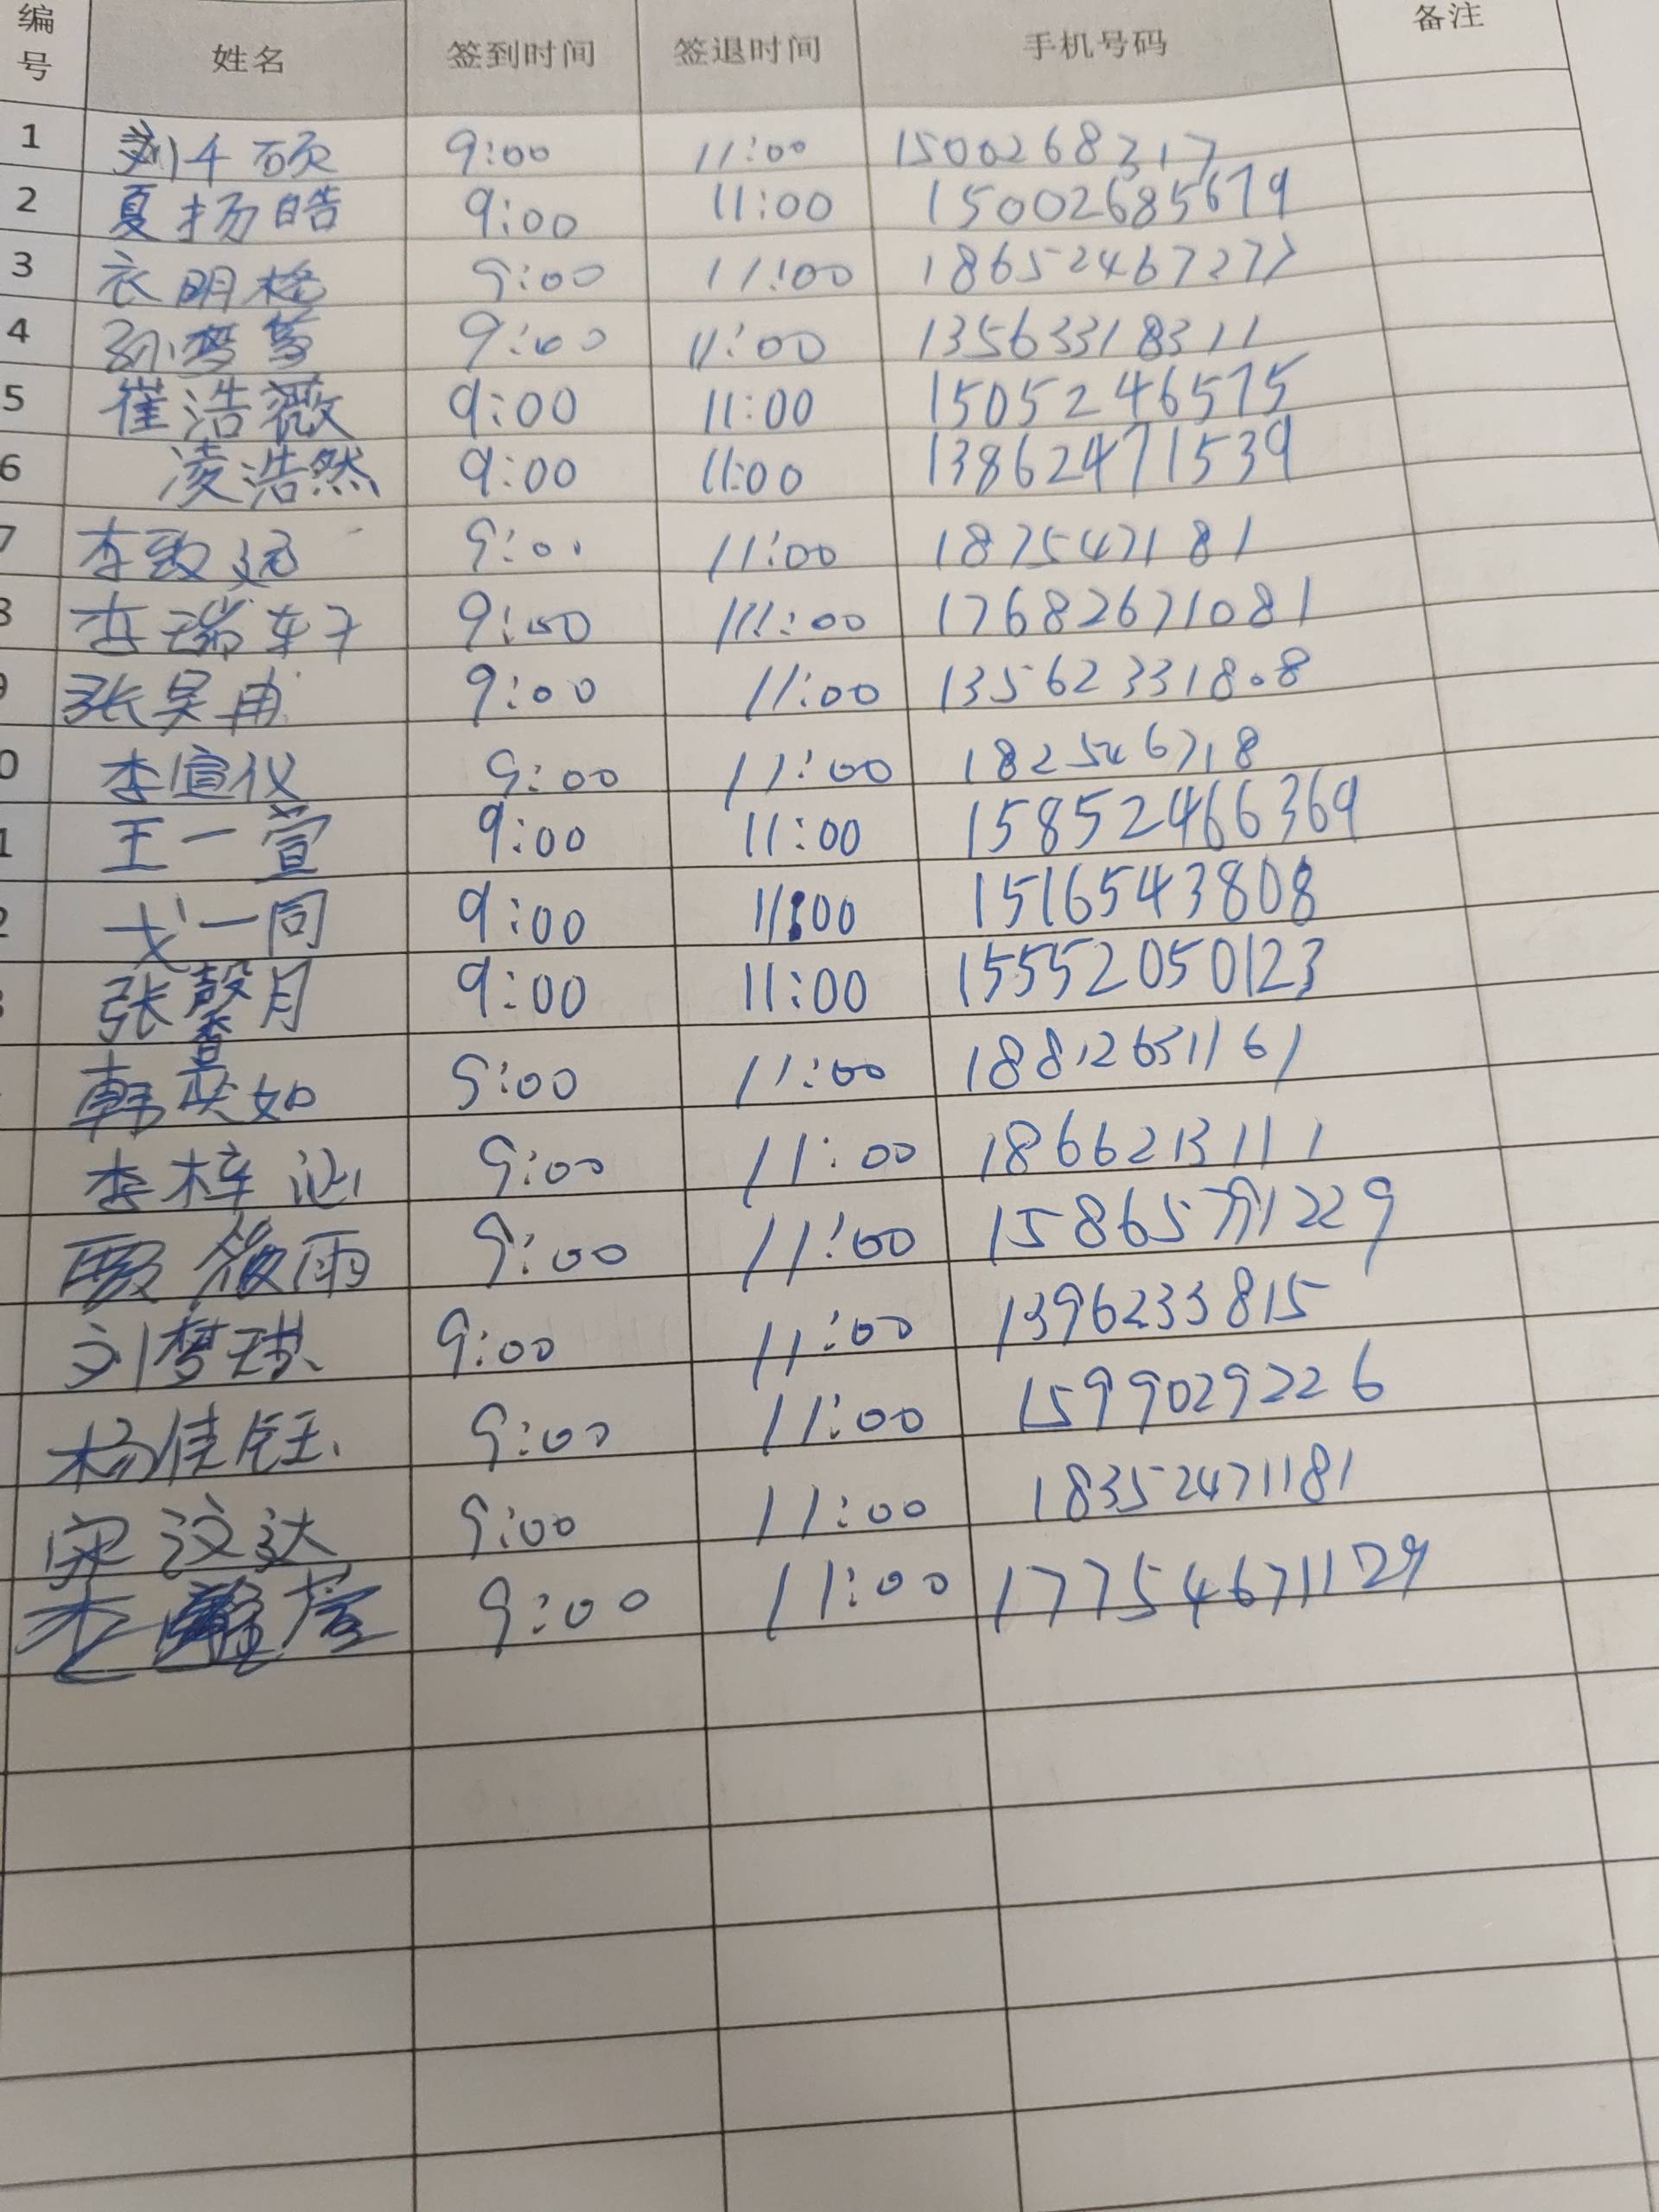 编号 姓名 签到时间 签退时间 手机号码 备注
1 刘千硕 9:00 11:00 1500268317
2 夏扬皓 9:00 11:00 15002685679
3 衣明格 9:00 11:00 18652467277
4 孙梦 9:00 11:00 13563318311
5 崔浩薇 9:00 11:00 15052246575
6 凌浩然 9:00 11:00 13862471539
7 李致远 11:00 187547181
李瑞轩 9:00 11:00 17682671081
张昊冉 9:00 11:00 13562331808
李宣仪 9:00 11:00 182546718
王一萱 9:00 11:00 15852466369
戈一同 9:00 11:00 15165543808
张馨月 9:00 11:00 15552050123
韩 如 9:00 11:00 18812651161
李梓涵 9:00 11:00 1866213111
雨 9:00 11:00
刘梦琪 9:00 11:00 1396233815
杨佳钰 9:00 11:00 15990292226
宋汶达 9:00 11:00 18352471181
9:00 11:00